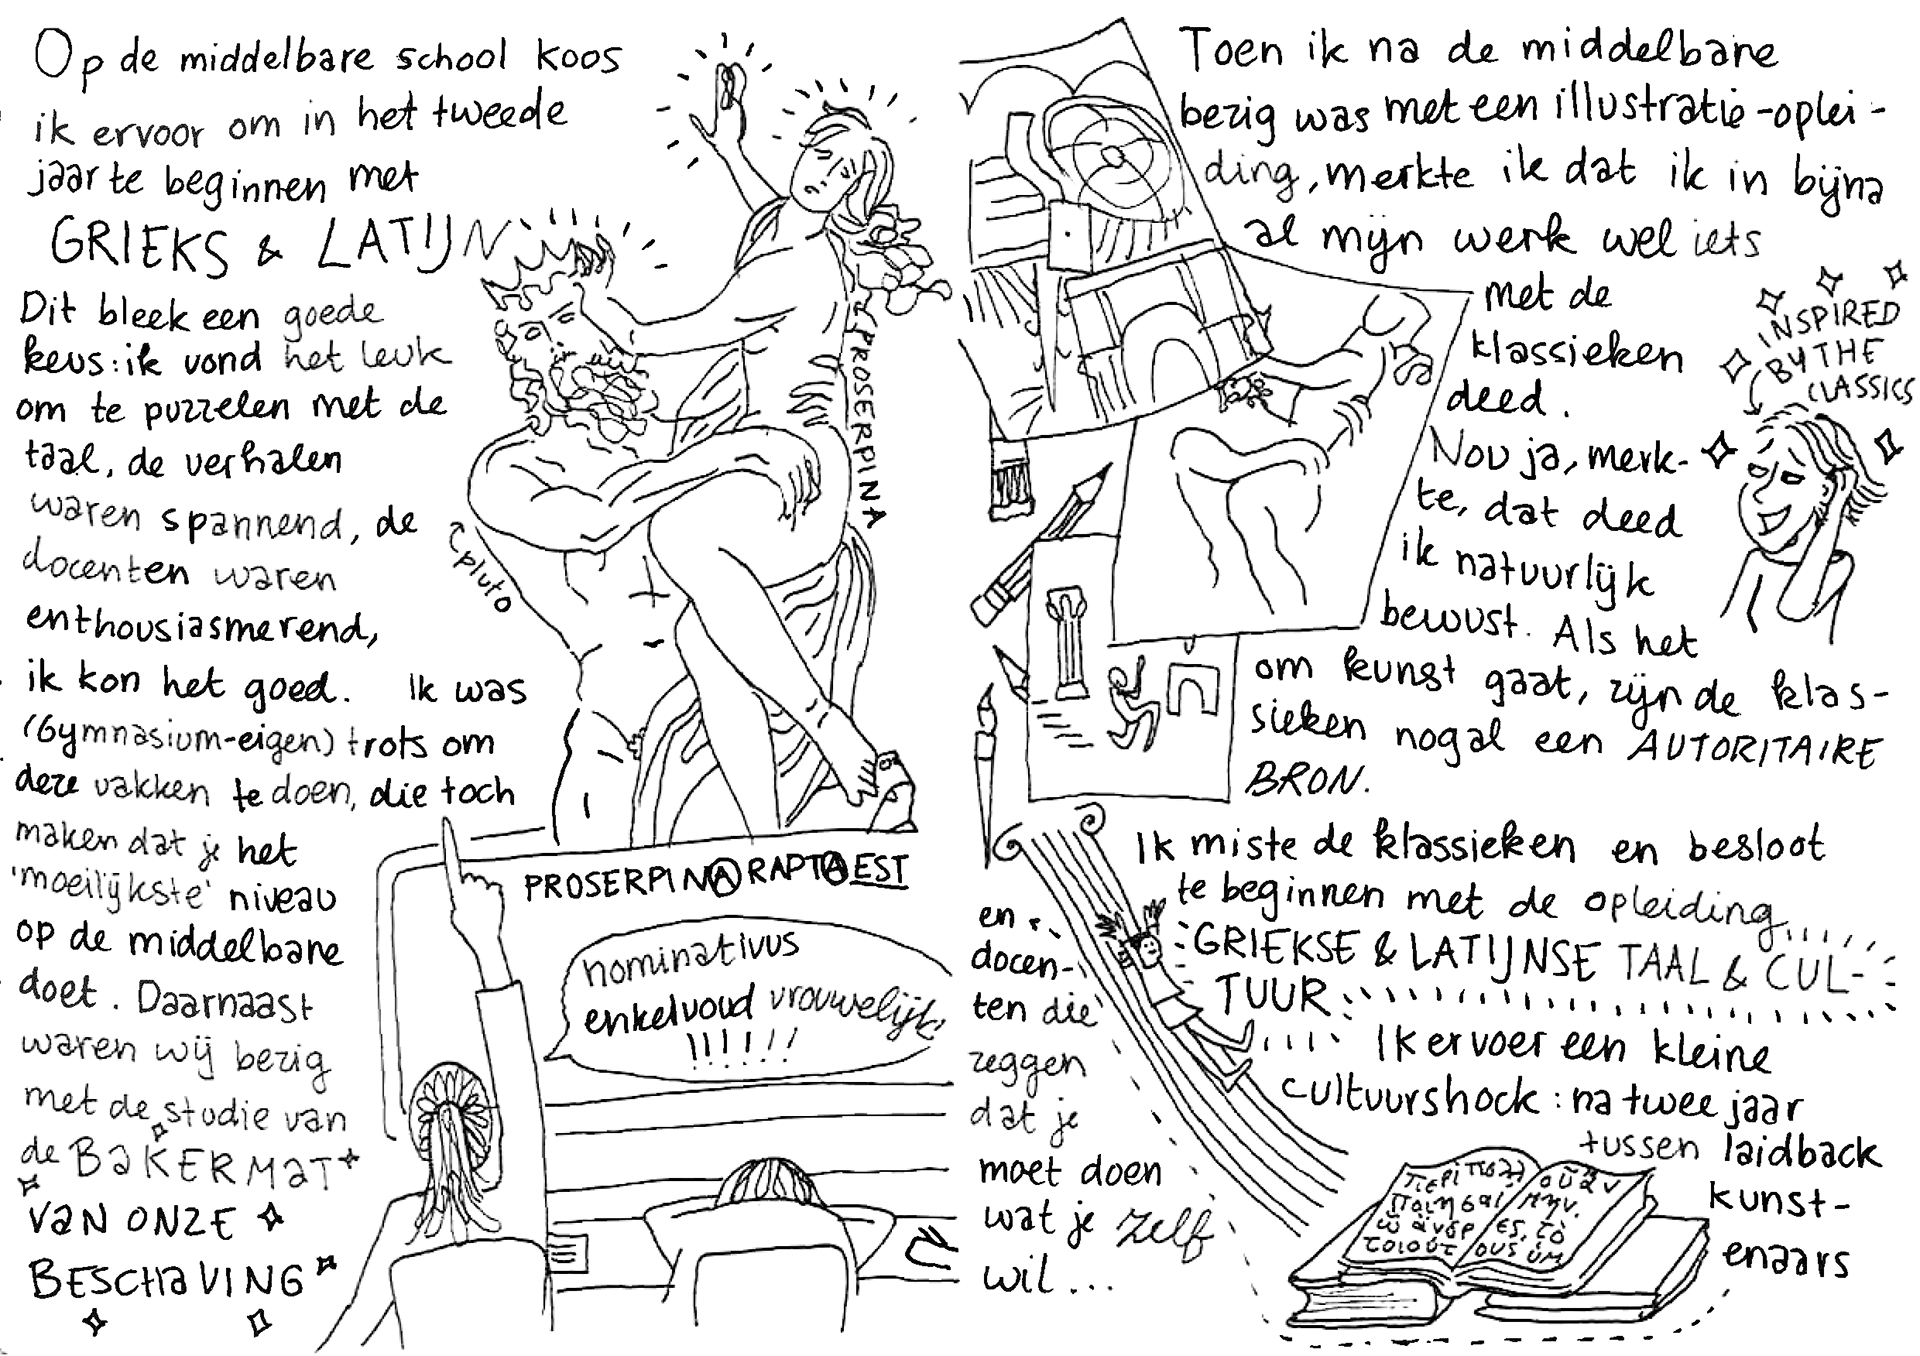 Op de middelbare school koos
ik ervoor om in het tweede
jaar te beginnen met
GRIEKS & LATIJN
Dit bleek een goede
keus: ik vond het leuk
om te puzzelen met de
taal, de verhalen
waren spannend, de
docenten waren
enthousiasmerend,
ik kon het goed. Ik was
(Gymnasium-eigen) trots om
deze vakken te doen, die toch
maken dat je het
'moeilijkste' niveau
op de middelbare
doet. Daarnaast
waren wij bezig
met de studie van
de BAKERMAT
VAN ONZE
BESCHAVING
pluto
PROSERPINA
PROSERPINA RAPTA EST
nominativus
enkelvoud vrouwelijk
!!!!!!
Toen ik na de middelbare
bezig was met een illustratie-oplei-
ding, merkte ik dat ik in bijna
al mijn werk wel iets
met de
klassieken
deed.
INSPIRED
BY THE
CLASSICS
Nou ja, merk-
te, dat deed
ik natuurlijk
bewust. Als het
om kunst gaat, zijn de klas-
sieken nogal een AUTORITAIRE
BRON.
Ik miste de klassieken en besloot
te beginnen met de opleiding
GRIEKSE & LATIJNSE TAAL & CUL-
TUUR
Ik ervoer een kleine
cultuurshock: na twee jaar
tussen laidback
kunst-
enaars
en
docen-
ten die
zeggen
dat je
moet doen
wat je zelf
wil...
ποιησαι
μην.
ες, το
τοιούτ
ους ὑμ